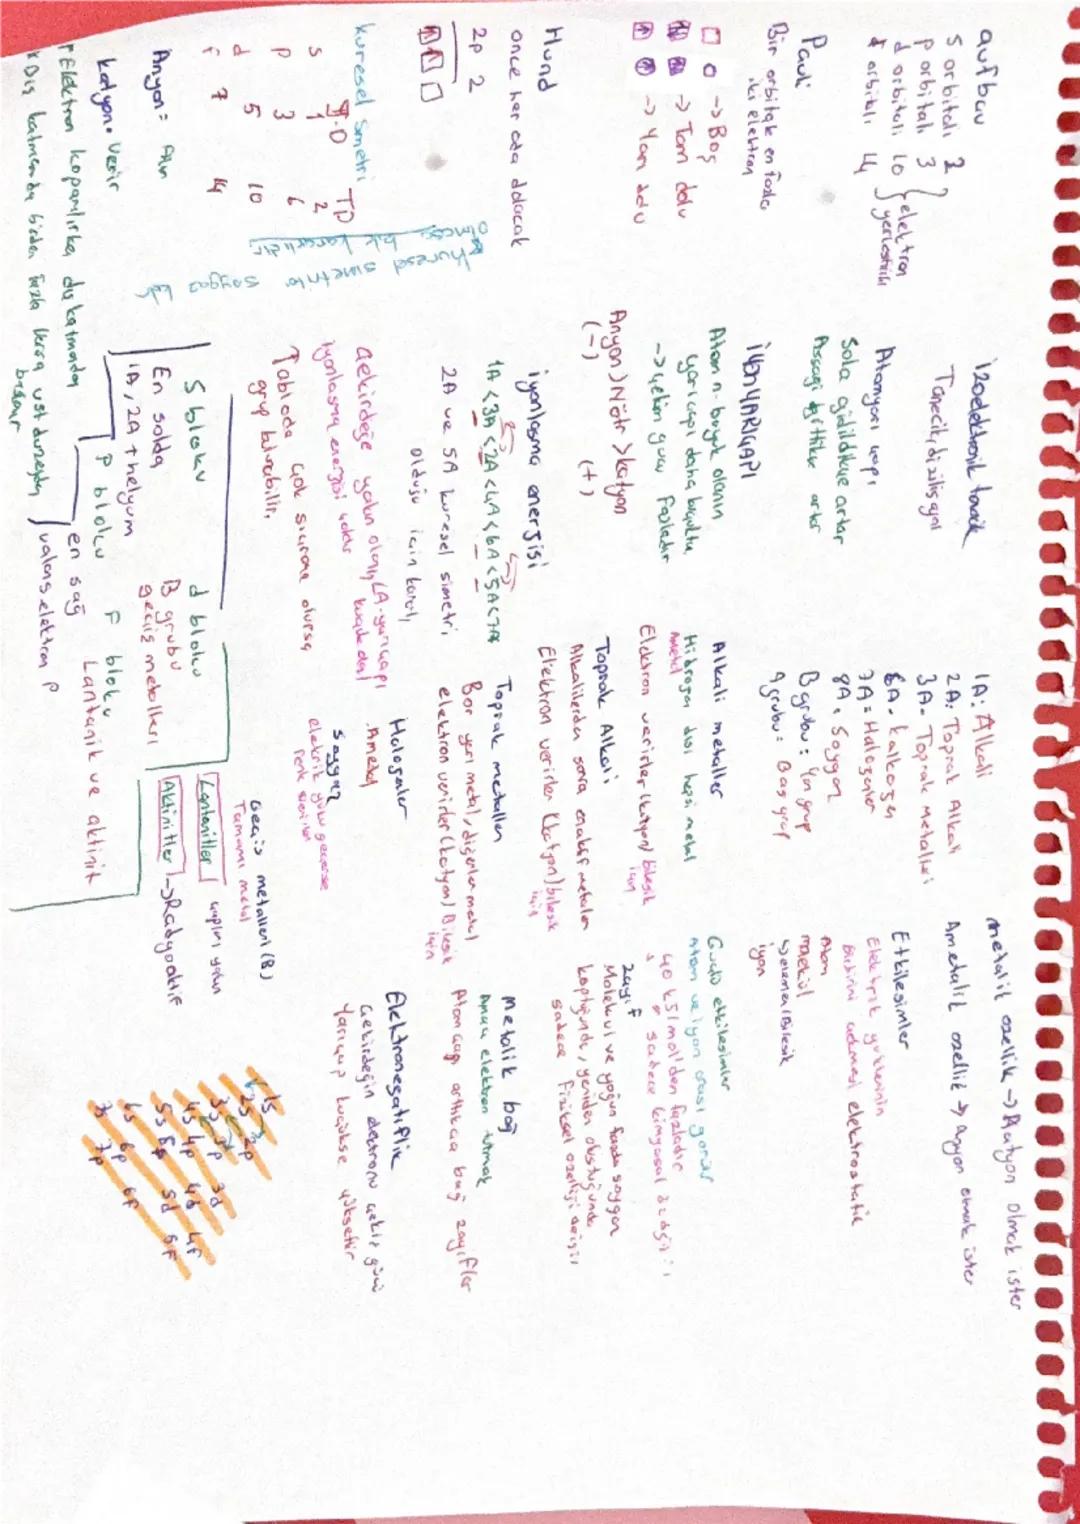 aufbau
s orbitali 2
p orbitali 3
d orbitali 10
f orbitali 14
elektron
yerleştirilir
Pauli
Bir orbitale en fazla
iki elektron
-> Boş
-> Tam dolu
-> Yarı dolu
Hund
önce her oda dolacak
2p 2
küresel Simetri
Y.D TD
s 1 2
p 3 6
d 5 10
f 7 14
küresel simetrio soygaz
Anyon= Alır
katyon= Verir
Elektron koparılırken dış katmandan
Dış katmanda birden fazla varsa üst düzeyden
başlar
izoelektronik tanecik
Tanecik, dizilişi aynı
Atomyarı çapı
Sola gidildikçe artar
Aşşağı gittikçe artar
iYON YARIÇAPI
Atom n. büyük olanın
yarıçapı daha
-> çekim gücü fazladır
Anyon > Nötr > katyon
(-) (+)
iyonlaşma enerjisi
1A < 3A < 2A < 4A < 6A < 5A < 7A
2A ve 5A küresel simetri
olduğu için
çekirdeğe yakın olan, yarıçapı
iyonlaşma enerjisi
Tabloda çok sıçrama olursa
grup bulunabilir.
S bloku
En solda
1A, 2A + helyum
P bloku
en sağ
valans elektron P
d bloku
B grubu
geçiş metalleri
F bloku
Lantanit ve aktinit
1A: Alkali
2A: Toprak Alkali
3A- Toprak Metalleri
6A- kalkojen
7A= Halojenler
8A, Soygaz
B grubu: Yan grup
A grubu: Baş grup
Alkali metaller
Hidrojen dışı hepsi metal
Ametal
Elektron verirler (katyon) bileşik
için
Toprak Alkali
Alkalilerden sonra en aktif metaller
Elektron verirler (katyon) bileşik
için
Toprak metalleri
Bor yarı metal, diğerleri metal
elektron verirler (katyon) Bileşik
için
Halojenler
Ametal
soygaz
elektrik yükü geçerse
renk verirler
Geçiş metalleri (B)
Tamamı metal
Lantanitler
Aktinitler -> Radyoaktif
metalik özellik -> katyon olmak ister
Ametalik özellik -> anyon olmak ister
Etkileşimler
Elektrik yüklerinin
birbirini çekmesi elektrostatik
Atom
molekül
-> element Bileşik
iyon
Güçlü etkileşimler
Atom ve iyon arası görülür
40 kj/mol'den fazladır
sadece kimyasal
zayıf
Molekül ve yoğun fazda soygaz
koptuğunda, yeniden oluştuğunda
sadece fiziksel özelliği değişir
metalik bağ
Amaç elektron tutmak
Atom çapı arttıkça bağ zayıflar
Elektronegatiflik
Çekirdeğin elektronu çekiş gücü
Yarıçap küçükse yükseltir
1s
2s 2p
3s 3p 3d
4s 4p 4d 4f
5s 5p 5d 5f
6s 6p 6f
7s 7p